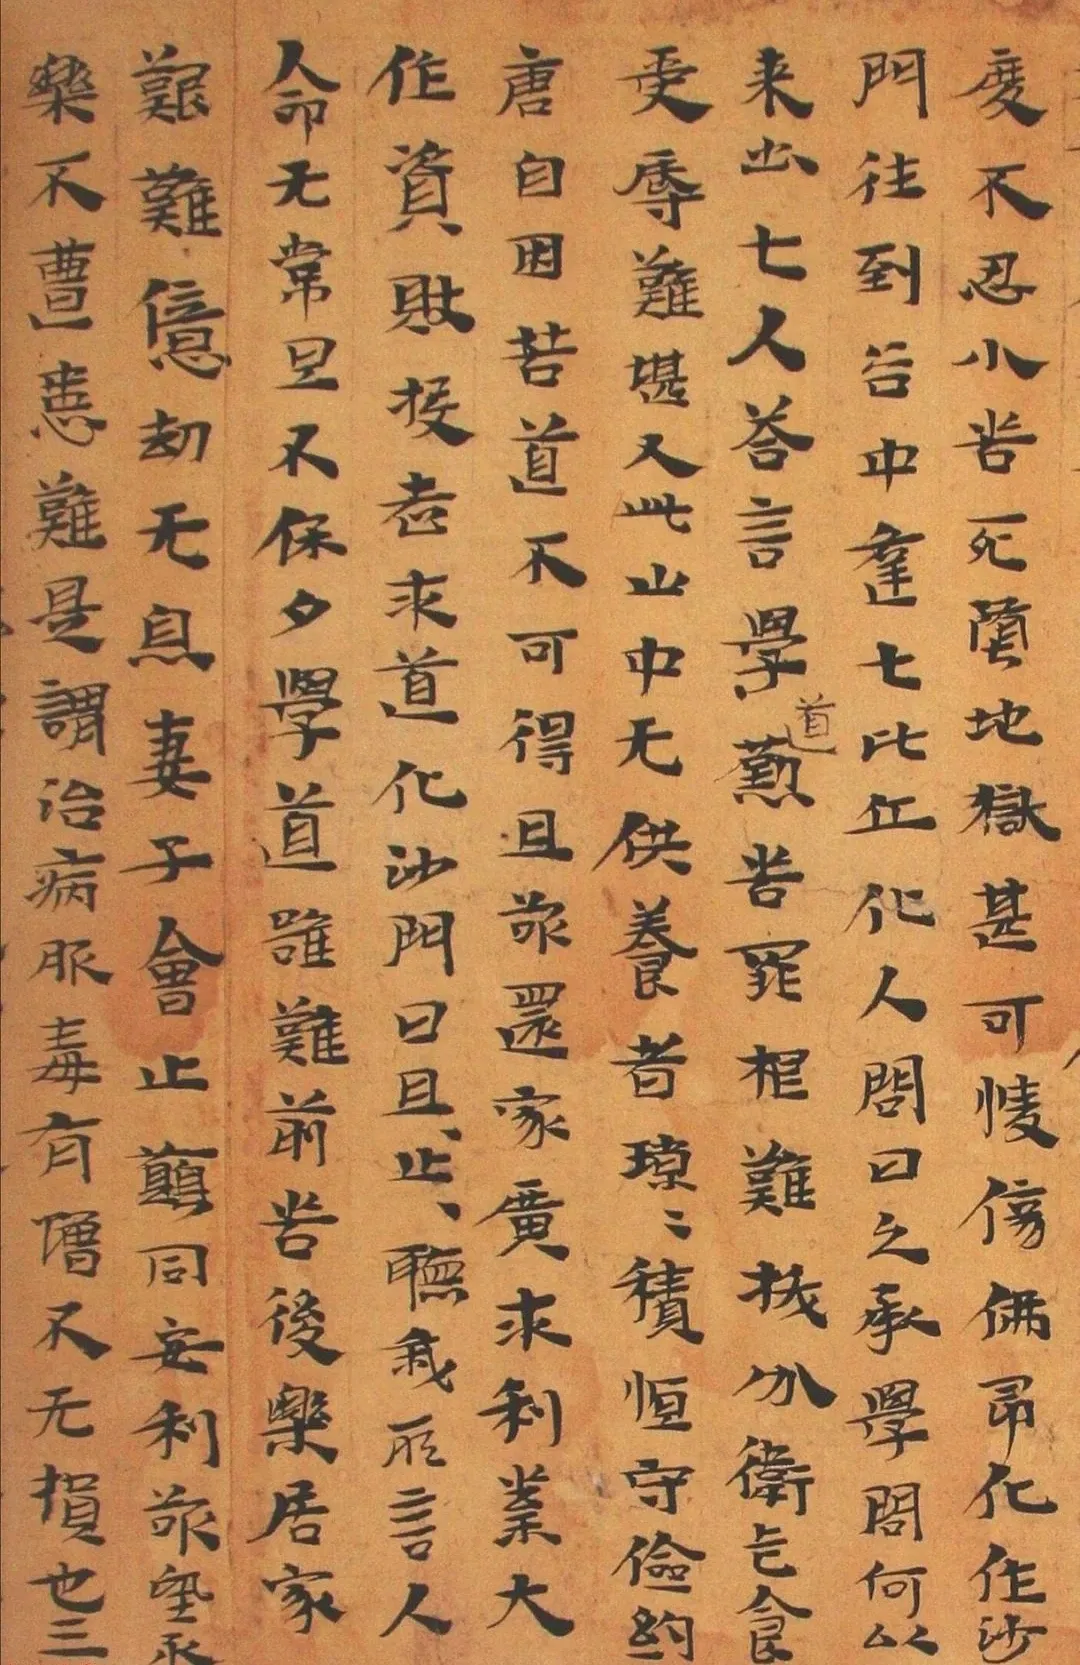 度不忍小苦死堕地獄甚可憐傷佛即化作沙
門往到谷中逢七比丘化人問曰久承學問何以
来出七人荅言學道懃苦罪相難拔分衛乞食
受辱難堪又此山中无供養者瓊〻積恒守儉約
唐自困苦道不可得且欲還家廣求利業大
作資財投老求道化沙門曰且止、聽我所言人
命无常旦不保夕學道雖難前苦後樂居家
艱難億劫无息妻子會止願同安利欲望永
樂不遭患難是謂治病服毒有增不无損也三